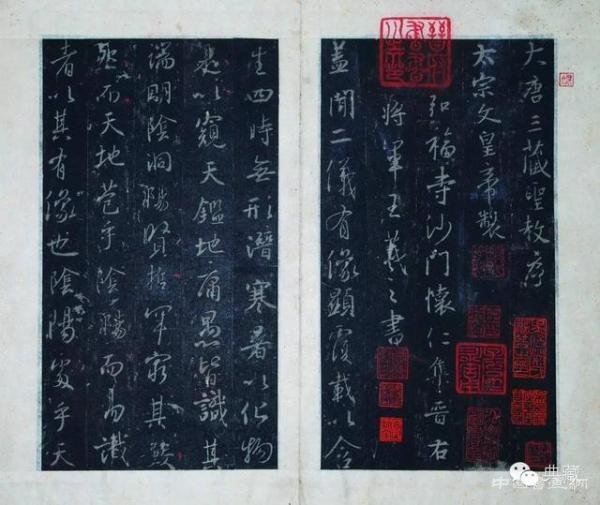 大唐三藏聖教序
太宗文皇帝製
弘福寺沙門懷仁集晉右
將軍王羲之書
蓋聞二儀有像顯覆載以含
生四時無形潛寒暑以化物
是以窺天鑑地庸愚皆識其
端明陰洞陽賢哲罕窮其數
然而天地苞乎陰陽而易識
者以其有像也陰陽處乎天
典藏